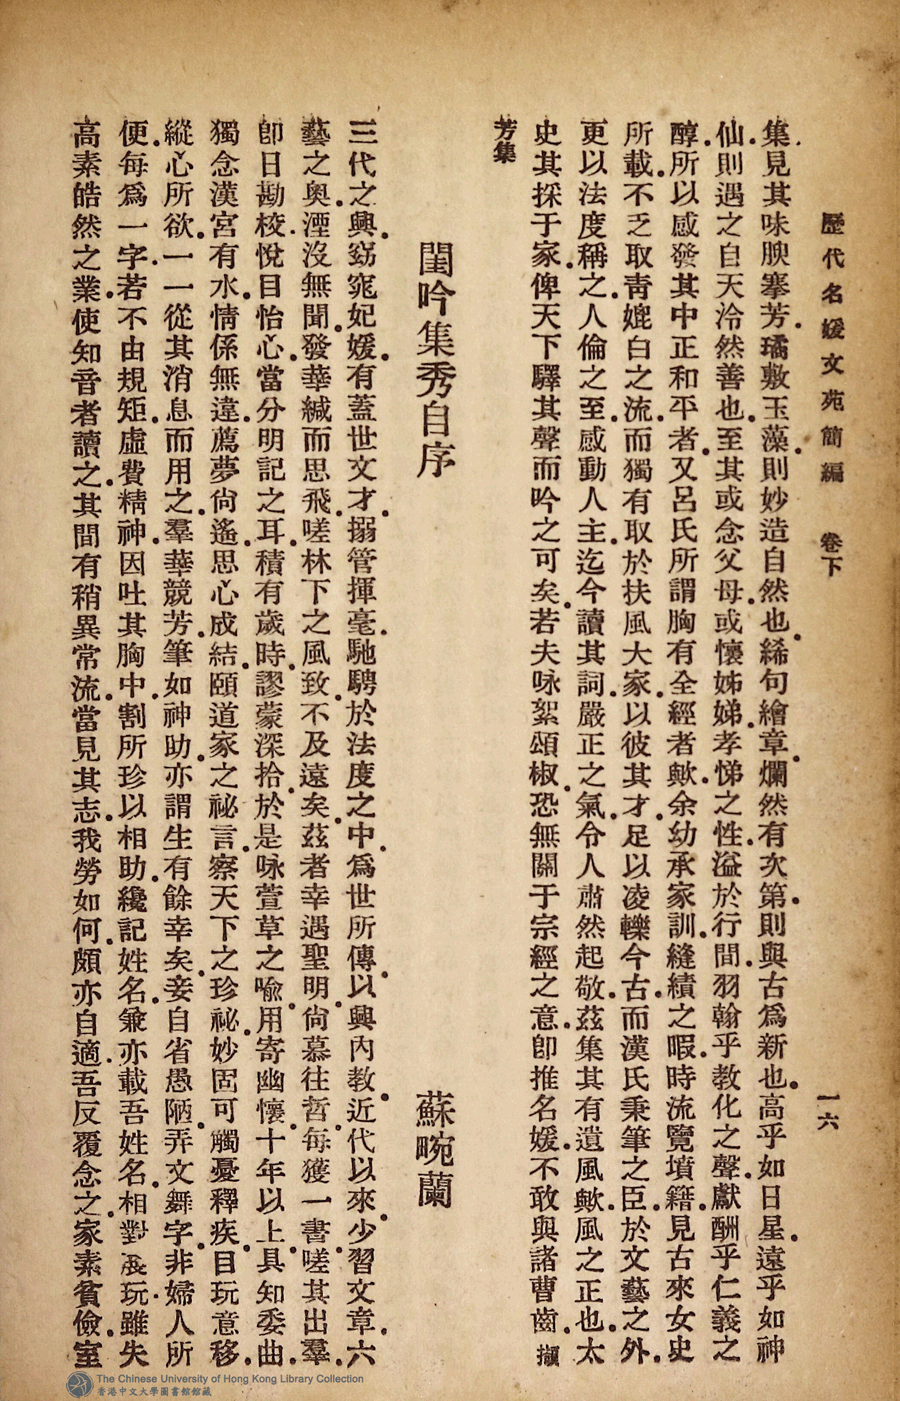 歷代名媛文苑簡編　卷下　一六
集見其味腴搴芳璚敷玉藻則妙造自然也絺句繪章爛然有次第則與古爲新也高乎如日星遠乎如神
仙則遇之自天泠然善也至其或念父母或懷姊娣孝悌之性溢於行間羽翰乎教化之聲獻酬乎仁義之
醇所以感發其中正和平者又呂氏所謂胸有全經者歟余幼承家訓縫績之暇時流覽墳籍見古來女史
所載不乏取靑媲白之流而獨有取於扶風大家以彼其才足以凌轢今古而漢氏秉筆之臣於文藝之外
更以法度稱之人倫之至感動人主迄今讀其詞嚴正之氣令人肅然起敬茲集其有遺風歟風之正也太
史其採于家俾天下驛其聲而吟之可矣若夫咏絮頌椒恐無關于宗經之意卽推名媛不敢與諸曹齒擷
芳集
閨吟集秀自序　蘇畹蘭
三代之興窈窕妃媛有蓋世文才搦管揮毫馳騁於法度之中爲世所傳以興內教近代以來少習文章六
藝之奥湮沒無聞發華緘而思飛嗟林下之風致不及遠矣茲者幸遇聖明尙慕往哲每獲一書嗟其出羣
卽日勘校悅目怡心當分明記之耳積有歲時謬蒙深拾於是咏萱草之喩用寄幽懷十年以上具知委曲
獨念漢宮有水情係無違薦夢尙遙思心成結頤道家之祕言察天下之珍祕妙固可觸憂釋疾目玩意移
縱心所欲一一從其消息而用之羣華競芳筆如神助亦謂生有餘幸矣妾自省愚陋弄文舞字非婦人所
便每爲一字若不由規矩虛費精神因吐其胸中割所珍以相助纔記姓名兼亦載吾姓名相對展玩雖失
高素皓然之業使知音者讀之其間有稍異常流當見其志我勞如何頗亦自適吾反覆念之家素貧儉室
The Chinese University of Hong Kong Library Collection
香港中文大學圖書館館藏